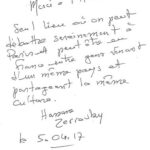 Merci à
Seul lieu où on peut
débattre sereinement à
peut être en
entre gens venant
d'un même pays et
partageant la même
culture.
Hassane
Zerrouky
le 5.04.17